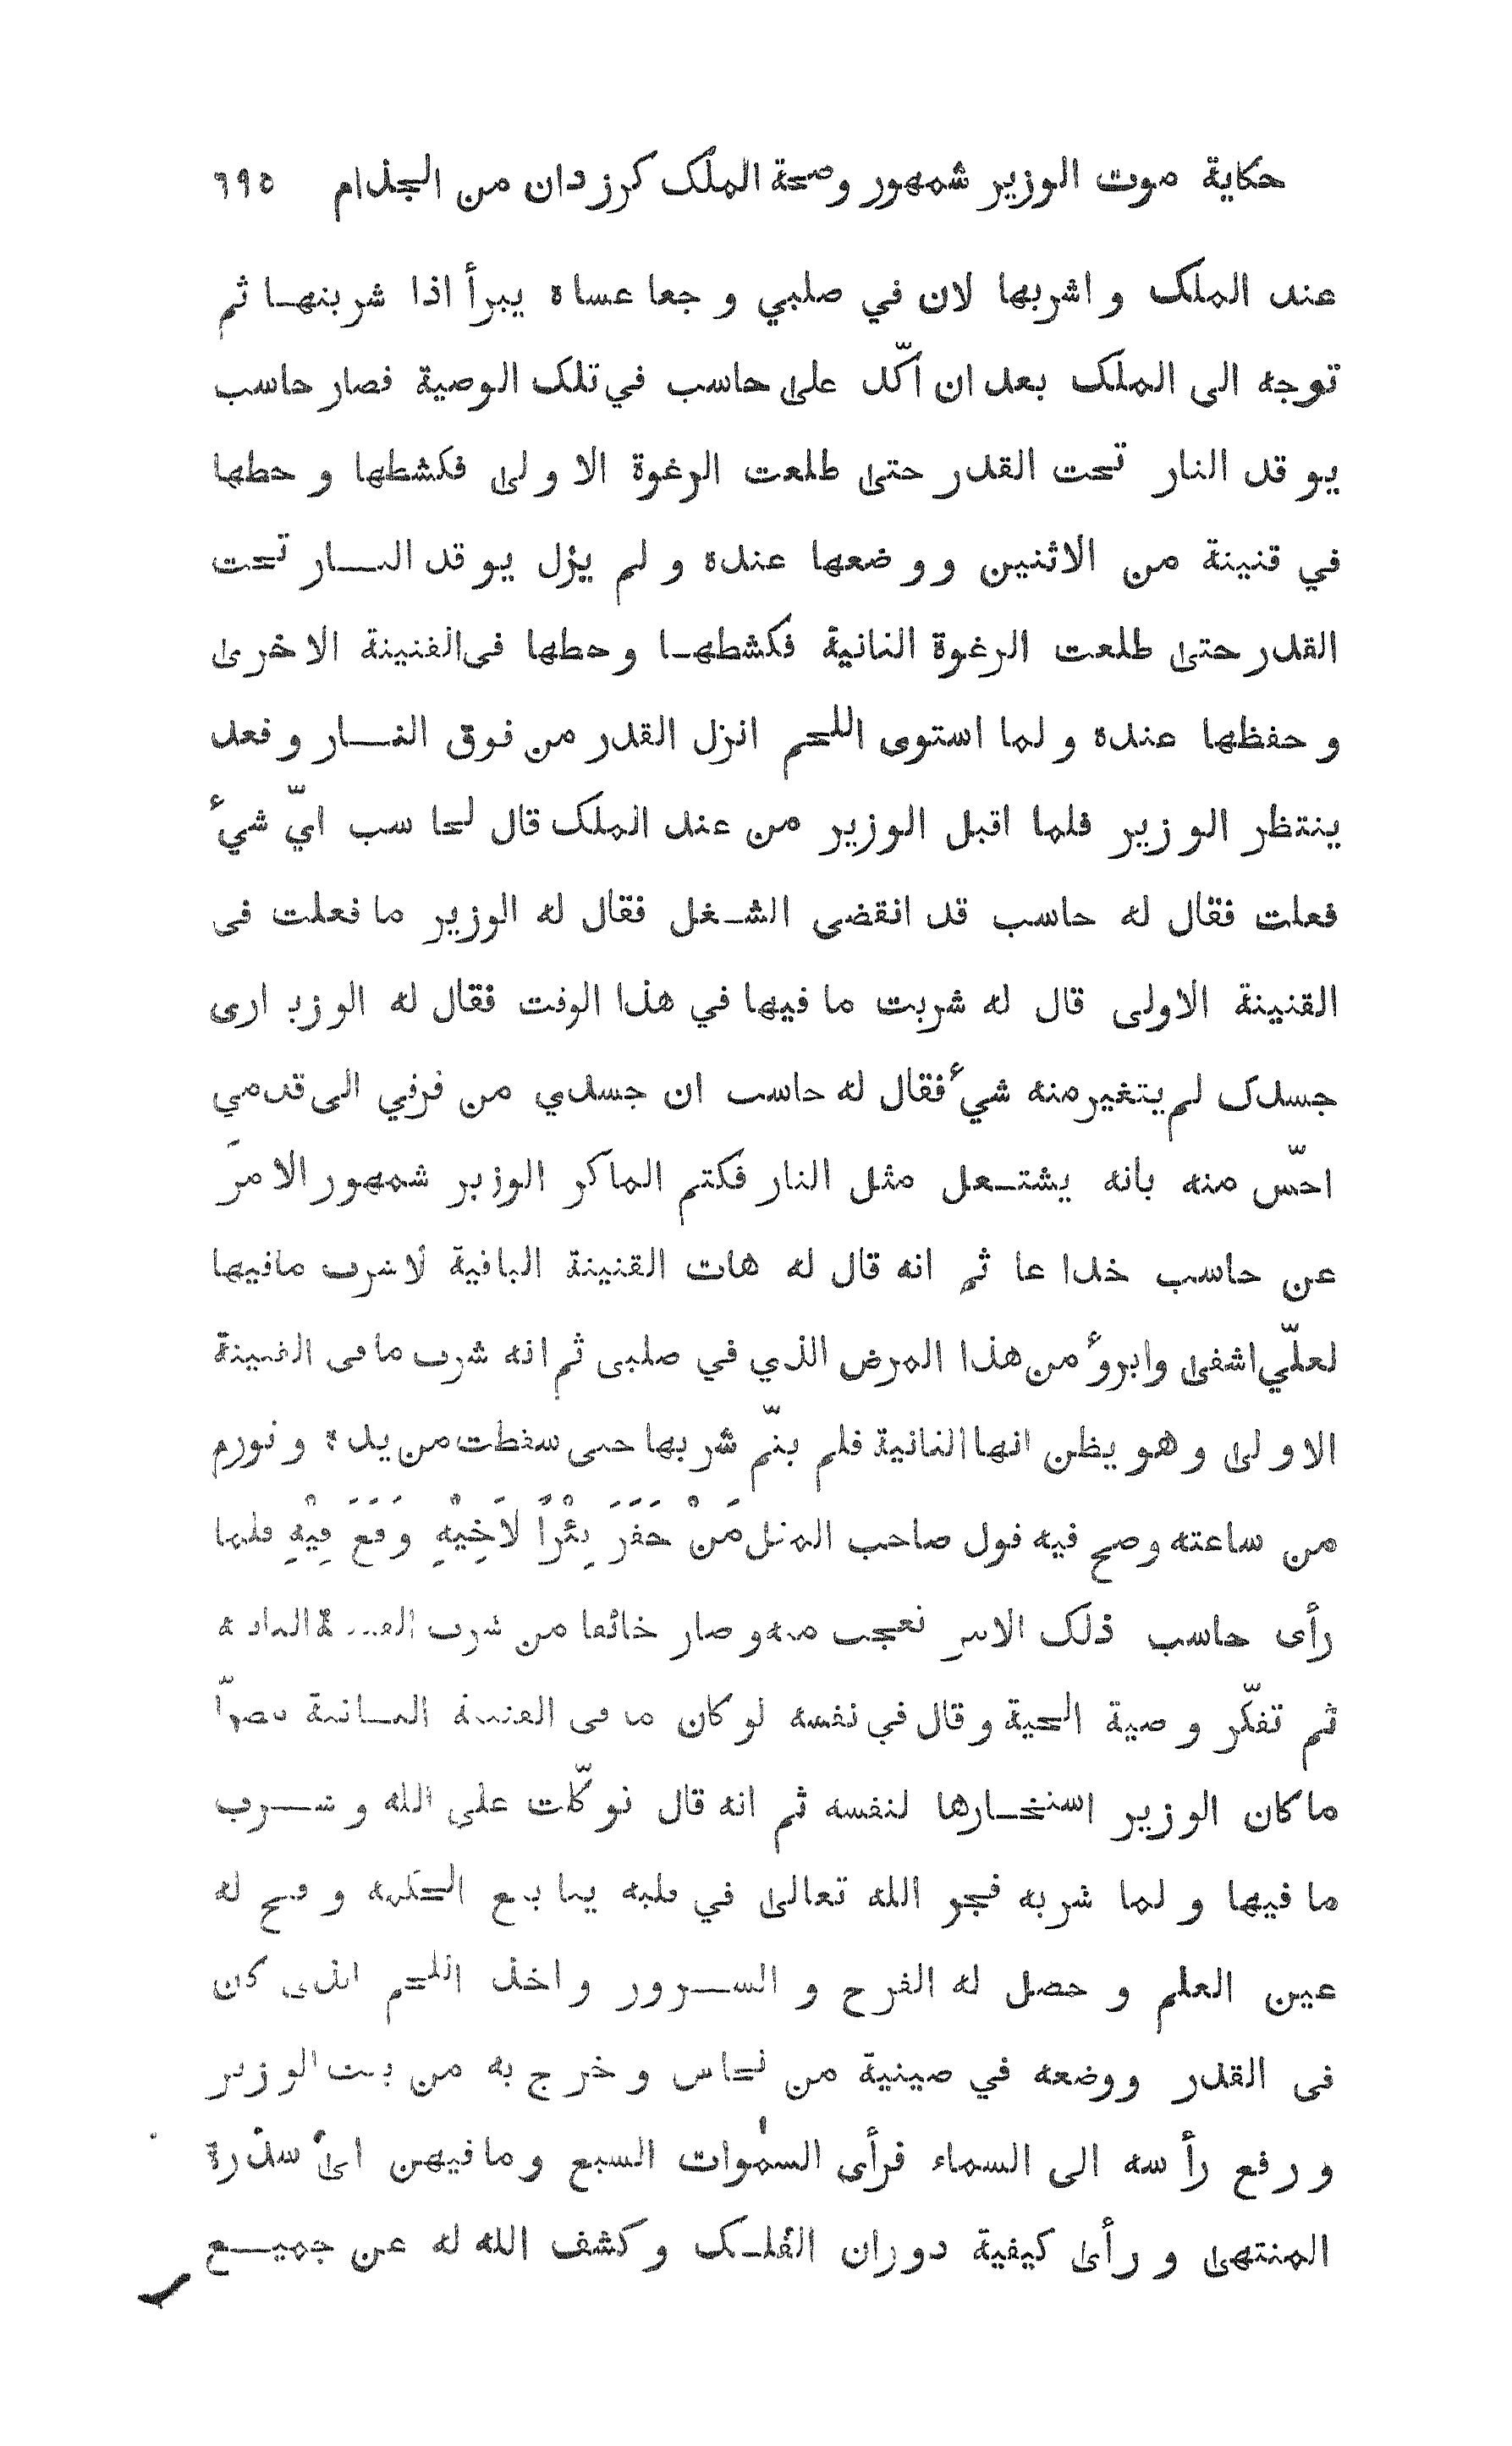 حكاية موت الوزير شمهور وصحة الملك كرزدان من الجذام ٦٩٥
عند الملك واشربها لان في صلبي وجعا عساه يبرأ اذا شربتها ثم
توجه الى الملك بعد ان اكّد على حاسب في تلك الوصية فصار حاسب
يوقد النار تحت القدر حتى طلعت الرغوة الاولى فكشطها وحطها
في قنينة من الاثنين ووضعها عنده ولم يزل يوقد النار تحت
القدر حتى طلعت الرغوة الثانية فكشطها وحطها فى القنينة الاخرى
وحفظها عنده ولما استوى اللحم انزل القدر من فوق النار وقعد
ينتظر الوزير فلما اقبل الوزير من عند الملك قال لحاسب ايّ شئ
فعلت فقال له حاسب قد انقضى الشغل فقال له الوزير ما فعلت فى
القنينة الاولى قال له شربت ما فيها في هذا الوقت فقال له الوزير ارى
جسدك لم يتغير منه شئ فقال له حاسب ان جسدي من فرقي الى قدمي
احسّ منه بانه يشتعل مثل النار فكتم الماكر الوزير شمهور الامرَ
عن حاسب خداعا ثم انه قال له هات القنينة الباقية لاشرب مافيها
لعلّي اشفى وابروٴ من هذا المرض الذي في صلبى ثم انه شرب ما فى القنينة
الاولى وهو يظن انها الثانية فلم يتمّ شربها حتى سقطت من يده وتورم
من ساعته وصح فيه قول صاحب المثل مَنْ حَفَرَ بِئْراً لاَخِيْهِ وَقَعَ فِيْهِ فلما
رأى حاسب ذلك الامر تعجب منه وصار خائفا من شرب القنينة الثانية
ثم تفكّر وصية الحية وقال في نفسه لو كان ما فى القنينة الثانية مضرّا
ماكان الوزير استخارها لنفسه ثم انه قال توكّلت على الله وشرب
ما فيها ولما شربه فجر الله تعالى في قلبه ينابيع الحكمة وفتح له
عين العلم وحصل له الفرح والسرور واخذ اللحم الذى كان
فى القدر ووضعه في صينية من نحاس وخرج به من بيت الوزير
ورفع رأسه الى السماء فرأى السمٰوات السبع وما فيهن الى سدرة
المنتهى ورأى كيفية دوران الفلك وكشف الله له عن جميع